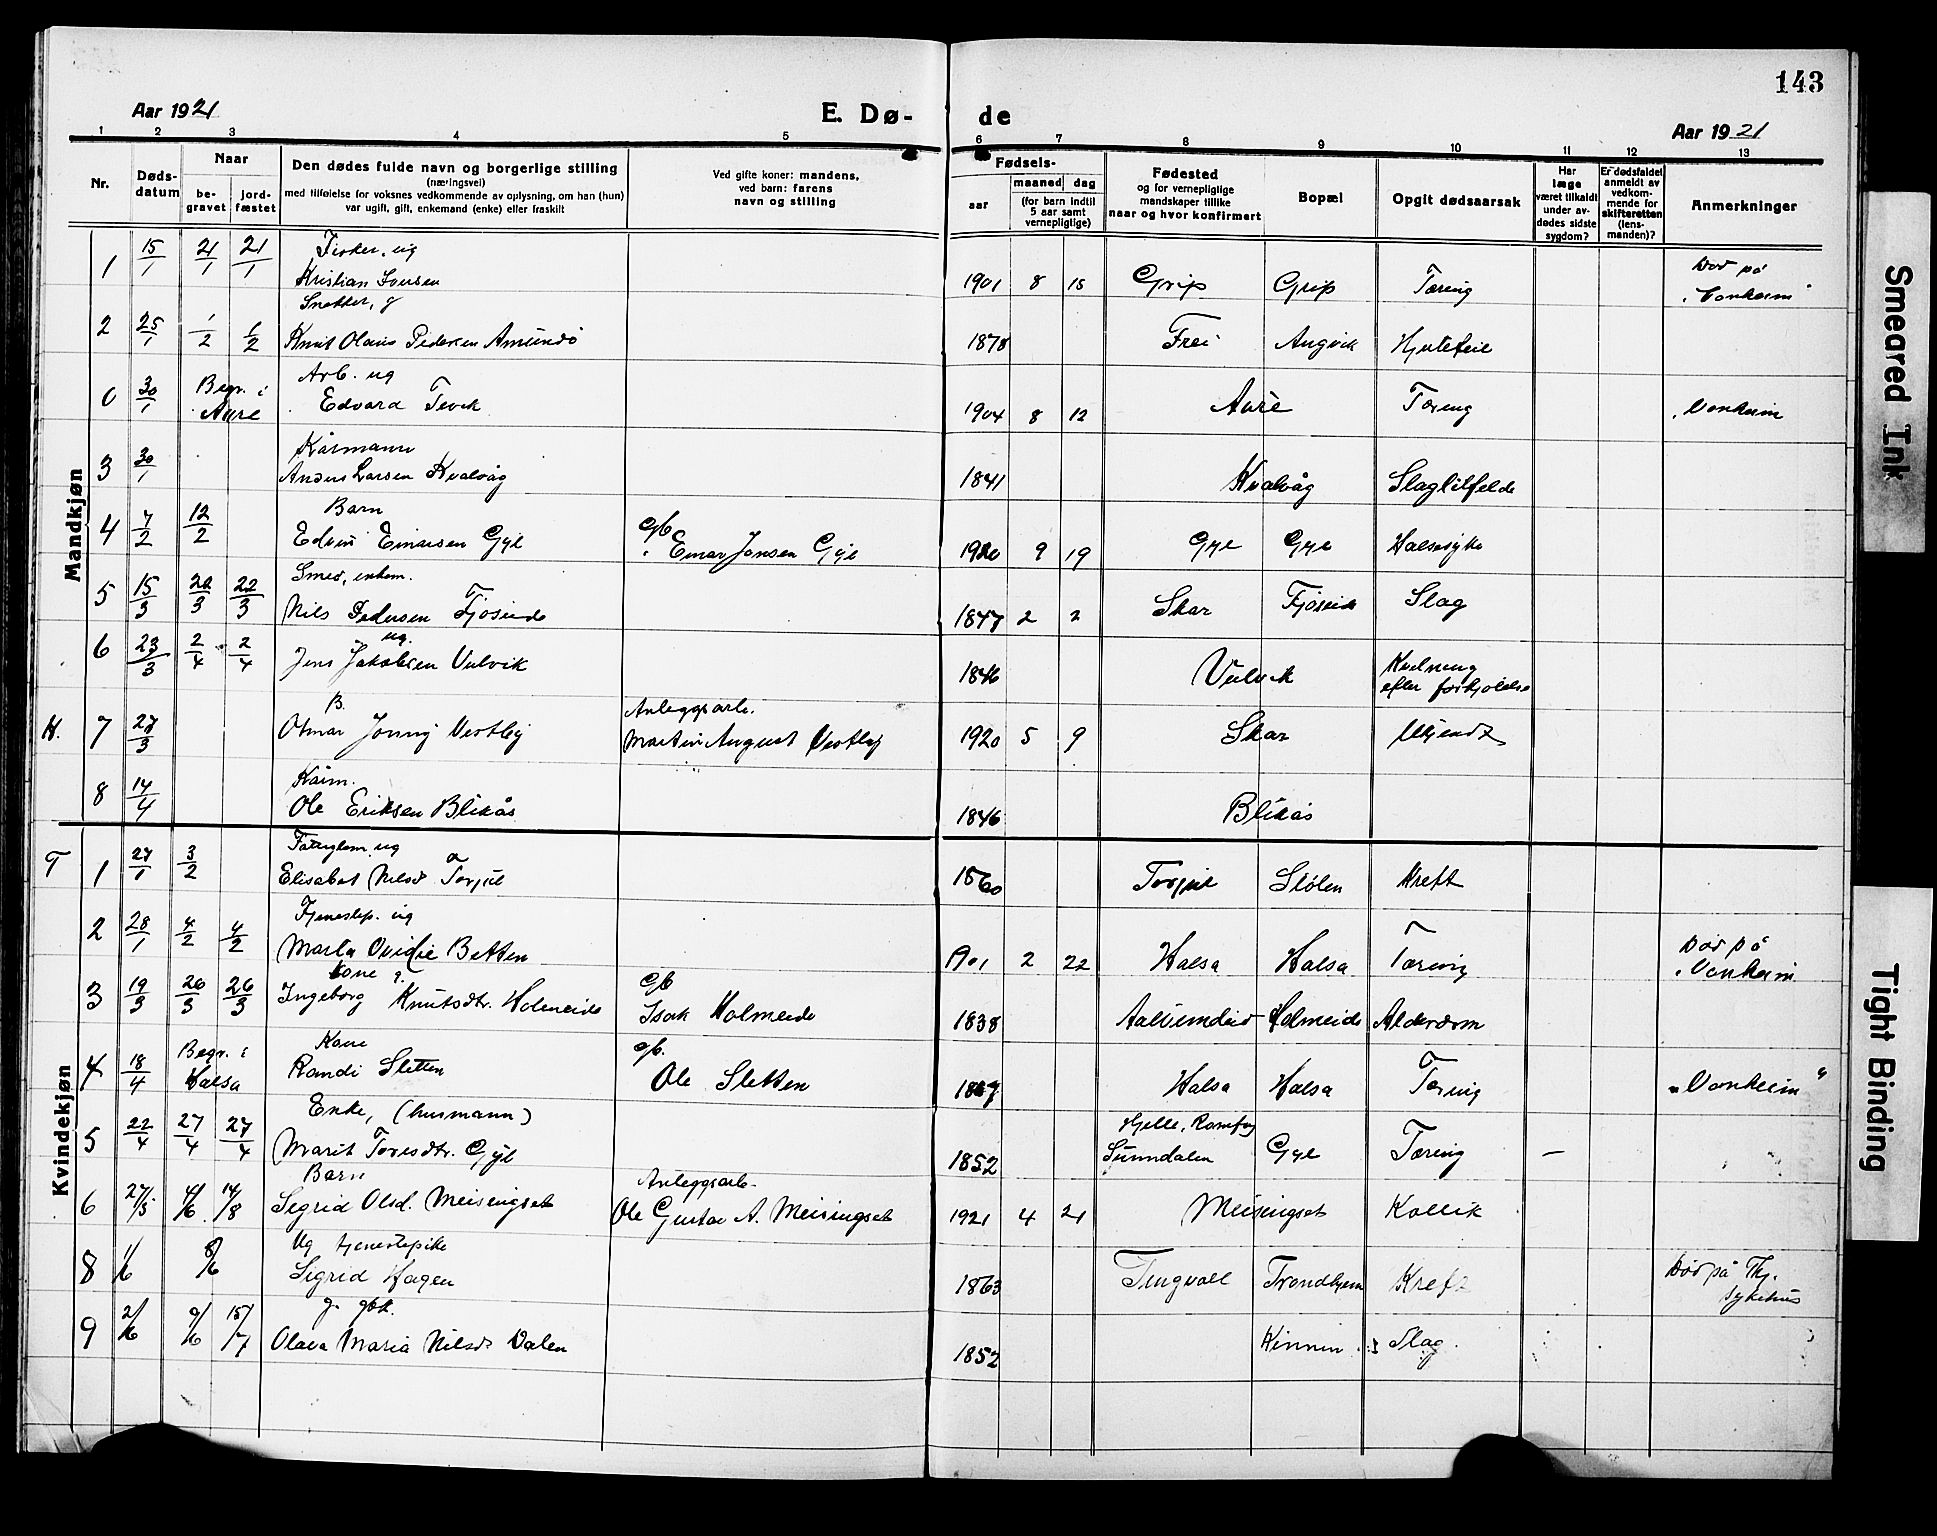 143
Aar 1921
E. Dø-
de
Aar 1921
1 2 3 4 5 6 7 8 9 10 11 12 13
Nr.
Døds-
datum
Naar
be-
gravet
jord-
fæstet
Den dødes fulde navn og borgerlige stilling
(næringsvei)
med tilføielse for voksnes vedkommende av oplysning, om han (hun)
var ugift, gift, enkemand (enke) eller fraskilt
Ved gifte koner: mandens,
ved barn: farens
navn og stilling
Fødsels-
aar
maaned dag
(for barn indtil
5 aar samt
vernepligtige)
Fødested
og for vernepligtige
mandskaper tillike
naar og hvor konfirmert
Bopæl
Opgit dødsaarsak
Har
læge
været tilkaldt
under av-
dødes sidste
sygdom?
Er dødsfaldet
anmeldt av
vedkom-
mende for
skifteretten
(lens-
manden)?
Anmerkninger
Mandkjøn
Fisker, ug Død på
1 15/1 21/1 21/1 Kristian Iversen 1901 8 15 Grip Grip Tæring "Vonheim"
Snekker, g
2 25/1 1/2 1/2 Knut Olaus Pedersen Amundö 1878 Frei Angvik Hjertefeil
Arb. ug
0 30/1 Begr. i Aure Edvard Tevik 1904 8 12 Aure Tæring "Vonheim
Kårmann
3 30/1 Anders Larsen Kvalvåg 1841 Kvalvåg Slagtilfelde
Barn Gb
4 7/2 12/2 Edvin Einarsen Gyl Einar Jonsen Gyl 1920 9 19 Gyl Gyl Halssyke
Smed, enkem.
5 15/3 22/3 22/3 Nils Pedersen Fjöseide 1847 2 2 Skar Fjöseide Slag
ug.
6 23/3 2/4 2/4 Jens Jakobsen Vulvik 1846 Vulvik Kvelning
efter forkjölelse
B. Anleggsarb.
H. 7 27/3 Otmar Jonny Vestby Martin August Vestby 1920 5 9 Skar Ukjendt
Kårm.
8 14/4 Ole Eriksen Blikås 1846 Blikås
Kvindekjøn
Fattiglem. ug
T 1 27/1 3/2 Elisabet Nilsd Torjul 1860 Torjul Stölen Kreft
Tjenestep. ug Död på
2 28/1 4/2 4/2 Marta Ovidie Betten 1901 2 22 Halsa Halsa Tæring "Vonheim
Kone g. Gb
3 19/3 26/3 26/3 Ingeborg Knutsdtr. Holmeide Isak Holmeide 1838 Aalvundeid Holmeide Alderdom
Kone Gb.
4 18/4 Begr. i Halsa Randi Sletten Ole Sletten 1867 Halsa Halsa Tæring "Vonheim"
Enke, (husmann) Hjelle, Romfog
5 22/4 27/4 27/4 Marit Toresdtr. Gyl 1852 Sunndalen Gyl Tæring —
Barn Anleggsarb.
6 27/5 4/6 14/8 Sigrid Olsd. Meisingset Ole Gustav A. Meisingset 1921 4 21 Meisingset Kolik
Ug tjenestepike Död på Thj.
8 1/6 8/6 Sigrid Hagen 1863 Tingvoll Trondhjem Kreft sykehus
g. gbk.
9 2/6 9/6 15/7 Olava Maria Nilsd Dalen 1852 Slag.
Smeared Ink
Tight Binding